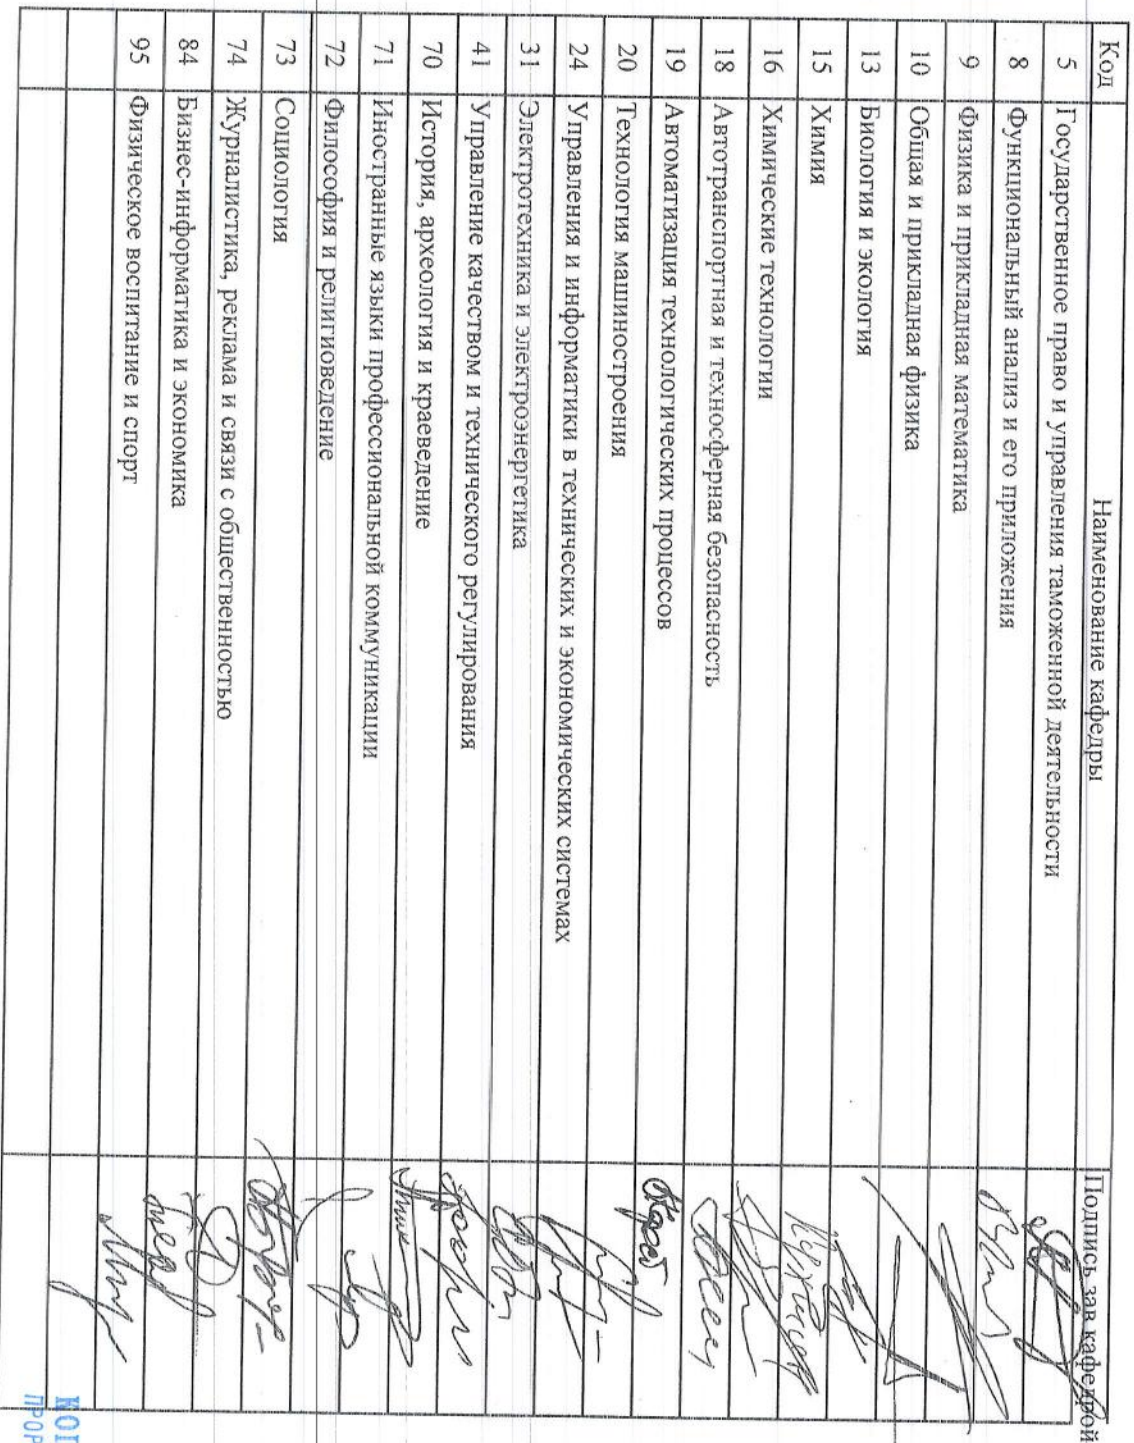 Код Наименование кафедры Подпись зав кафедрой
5 Государственное право и управления таможенной деятельности
8 Функциональный анализ и его приложения
9 Физика и прикладная математика
10 Общая и прикладная физика
13 Биология и экология
15 Химия
16 Химические технологии
18 Автотранспортная и техносферная безопасность
19 Автоматизация технологических процессов
20 Технология машиностроения
24 Управления и информатики в технических и экономических системах
31 Электротехника и электроэнергетика
41 Управление качеством и технического регулирования
70 История, археология и краеведение
71 Иностранные языки профессиональной коммуникации
72 Философия и религиоведение
73 Социология
74 Журналистика, реклама и связи с общественностью
84 Бизнес-информатика и экономика
95 Физическое воспитание и спорт